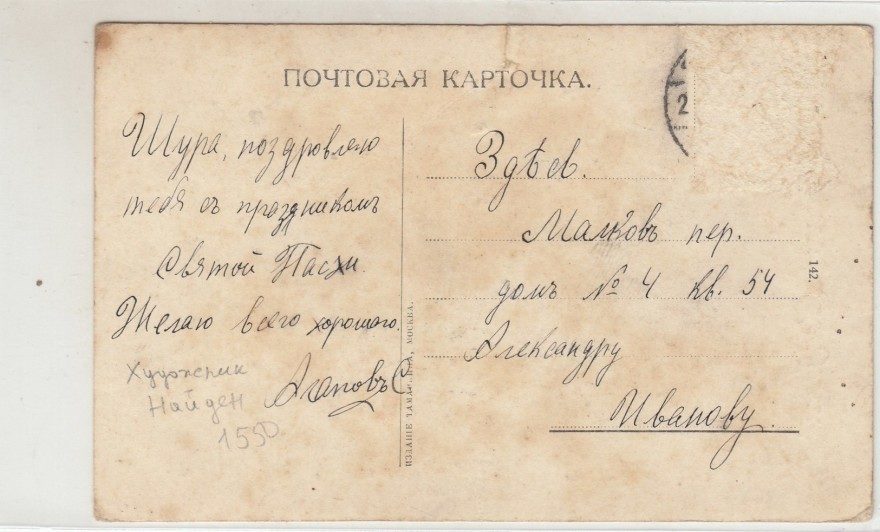 ПОЧТОВАЯ КАРТОЧКА.
Шура, поздровляю
тебя съ праздникомъ
Святой Пасхи.
Желаю всего хорошаго.
Агаповъ С
Художник
Найден
1550
Здѣсь.
Малковъ пер.
домъ № 4 кв. 54
Александру
Иванову.
142.
ИЗДАНІЕ МОСКВА.
2